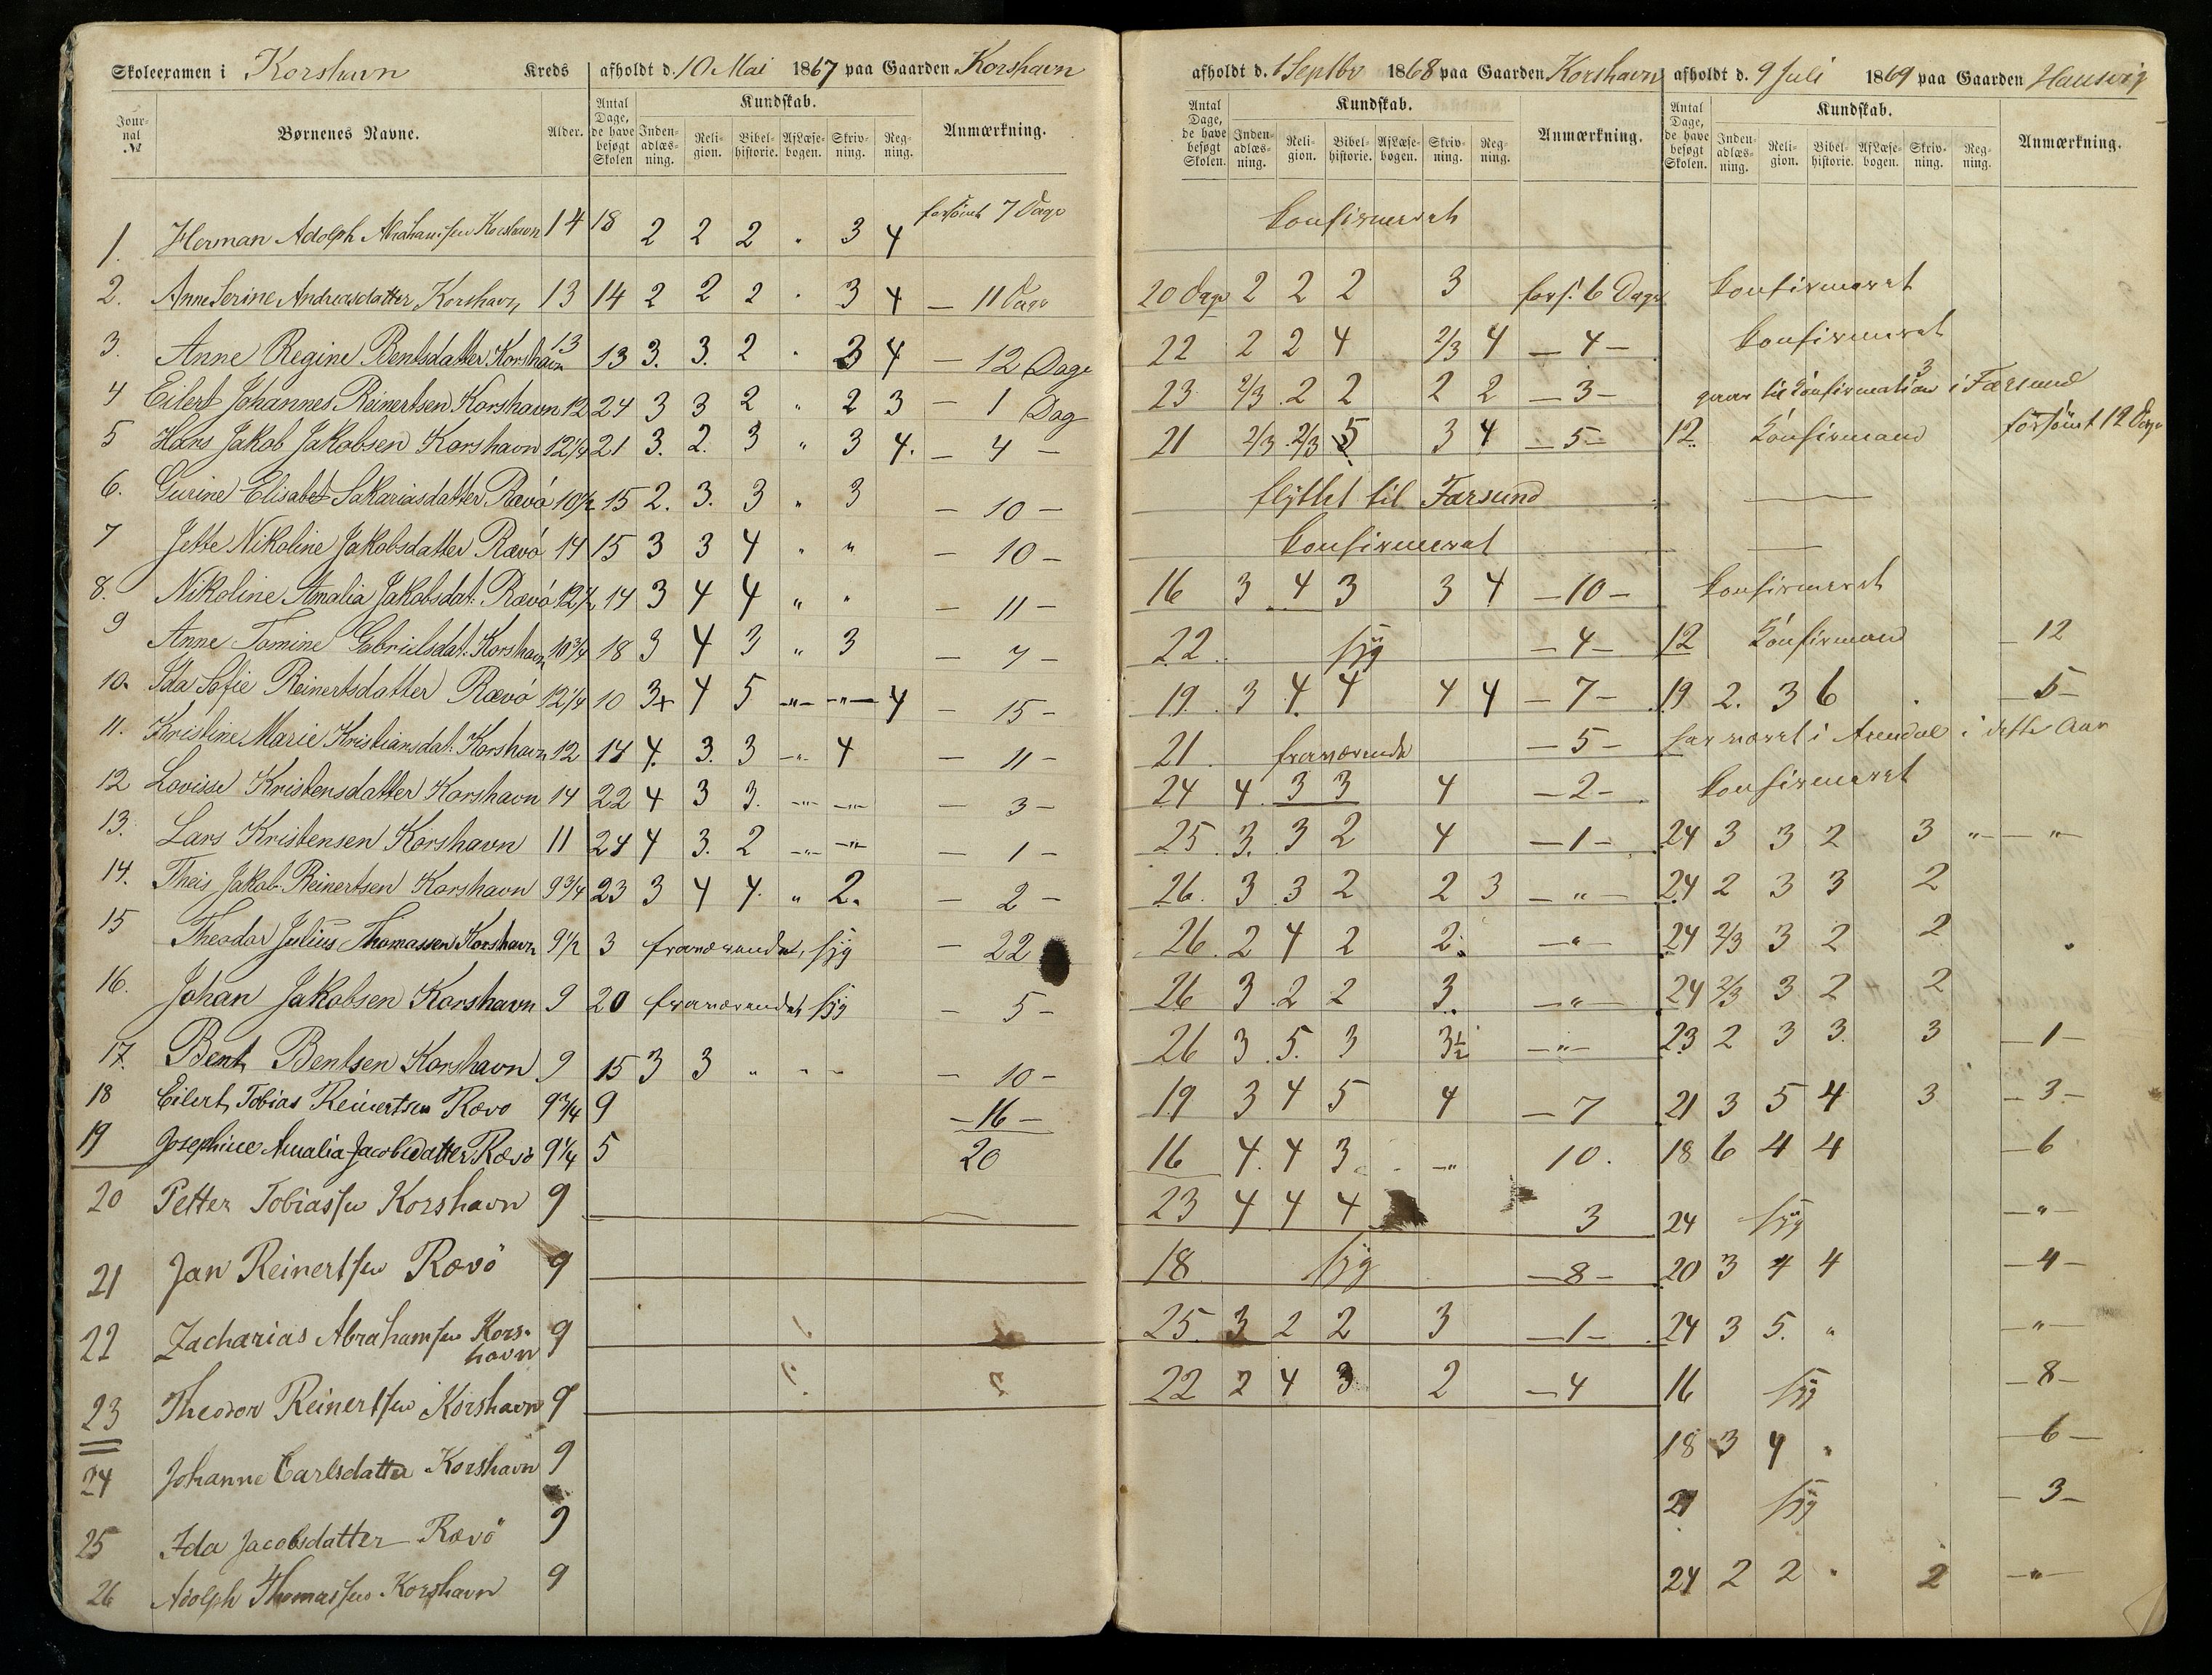 Skoleexamen i Korshavn Kreds afholdt d. 10 Mai 1867 paa Gaarden Korshavn
Journal № Børnenes Navne. Alder. Antal Dage, de have besøgt Skolen Kundskab. Indenadlæsning. Religion. Bibelhistorie. Af Læsebogen. Skrivning. Regning. Anmærkning.
1. Herman Adolph Abrahamsen Korshavn 14 18 2 2 2 " 3 4 forsömt 7 Dage
2. Anne Serine Andreasdatter Korshavn 13 14 2 2 2 " 3 4 — 11 Dage
3. Anne Regine Bentsdatter Korshavn 13 13 3. 3. 2 " 3 4 — 12 Dage
4 Eilert Johannes Reinertsen Korshavn 12 24 3 3 2 " 2 3 — 1 Dag
5 Hans Jakob Jakobsen Korshavn 12 1/4 21 3. 2. 3 " 3 4. — 4 —
6. Gurine Elisabet Sakariasdatter Rævö 10 1/2 15 2. 3. 3 " 3 — 10 —
7 Jette Nikoline Jakobsdatter Rævö 14 15 3 3 4 " " — 10 —
8. Nikoline Amalia Jakobsdat: Rævö 12 1/2 14 3 4 4 " " — 11 —
9 Anne Tomine Gabrielsdat: Korshavn 10 3/4 18 3 4 3 " 3 — 7 —
10. Ida Sofie Reinertsdatter Rævö 12 1/4 10 3+ 4 5 —"— —"— 4 — 15 —
11. Kristine Marie Kristiansdat: Korshavn 12 14 4. 3. 3 —"— 4 — 11 —
12 Lovisse Kristensdatter Korshavn 14 22 4 3 3. —"— —"— — 3 —
13. Lars Kristensen Korshavn 11 24 4 3. 2 —"— —"— — 1 —
14. Theis Jakob Reinertsen Korshavn 9 3/4 23 3 4 4. " 2. — 2 —
15 Theodor Julius Thomassen Korshavn 9 1/2 3 fraværende, syg — 22
16. Johan Jakobsen Korshavn 9 20 fraværende, syg — 5 —
17. Bent Bentsen Korshavn 9 15 3 3 " " " — 10 —
18 Eilert Tobias Reinertsen Rævo 9 3/4 9 — 16 —
19 Josephine Amalia Jacobsdatter Rævö 9 1/4 5 20
20 Petter Tobiassen Korshavn 9
21 Jan Reinertsen Rævö 9
22 Zacharias Abrahamsen Kors-
havn 9
23 Theodor Reinertsen Korshavn 9
24 Johanne Carlsdatter Korshavn 9
25 Ida Jacobsdatter Rævö 9
26 Adolph Thomassen Korshavn 9
afholdt d. 1 Septbr 1868 paa Gaarden Korshavn
Antal Dage, de have besøgt Skolen. Kundskab. Indenadlæsning. Religion. Bibelhistorie. Af Læsebogen. Skrivning. Regning. Anmærkning.
Konfirmeret
20 Dage 2 2 2 3 fors. 6 Dage
22 2 2 4 2/3 4 — 4 —
23 2/3 2 2 2 2 — 3 —
21 2/3 2/3 5 3 4 — 5 —
flyttet til Farsund
Konfirmeret
16 3 4 3 3 4 — 10 —
22 syg — 4 —
19 3 4. 4 4 4 — 7 —
21 fraværende — 5 —
24 4 3 3 4 — 2 —
25 3. 3 2 4 — 1 —
26 3 3 2 2 3 — " —
26 2 4 2 2. — " —
26 3 2 2 3. — " —
26 3 5. 3 3 1/2 — " —
19 3 4 5 4 — 7
16 4. 4 3 —" 10.
23 4 4 4 3
18 syg — 8 —
25 3 2 2 3 — 1 —
22 2 4 3 2 — 4
afholdt d. 9 Juli 1869 paa Gaarden Hausvig
Antal Dage, de have besøgt Skolen. Kundskab. Indenadlæsning. Religion. Bibelhistorie. Af Læsebogen. Skrivning. Regning. Anmærkning.
Konfirmeret
Konfirmeret
gaar til Konfirmation i Farsund
12 Konfirmand forsömt 12 Dage
Konfirmeret
12 Konfirmand — 12
19 2. 3 6 — 5 —
har været i Arendal i dette Aar
Konfirmeret
24 3 3 2 3 "— — "
24 2 3 3 2
24 2/3 3 2 2 "
24 2/3 3 2 2
23 2 3 3. 3 — 1 —
21 3 5 4 3 — 3 —
18 6 4 4 — 6
24 syg — " —
20 3 4 4 — 4 —
24 3 5. " — " —
16 syg — 8 —
18 3 4 " — 6 —
21 syg — 3 —
24 2 2 " 2 — " —